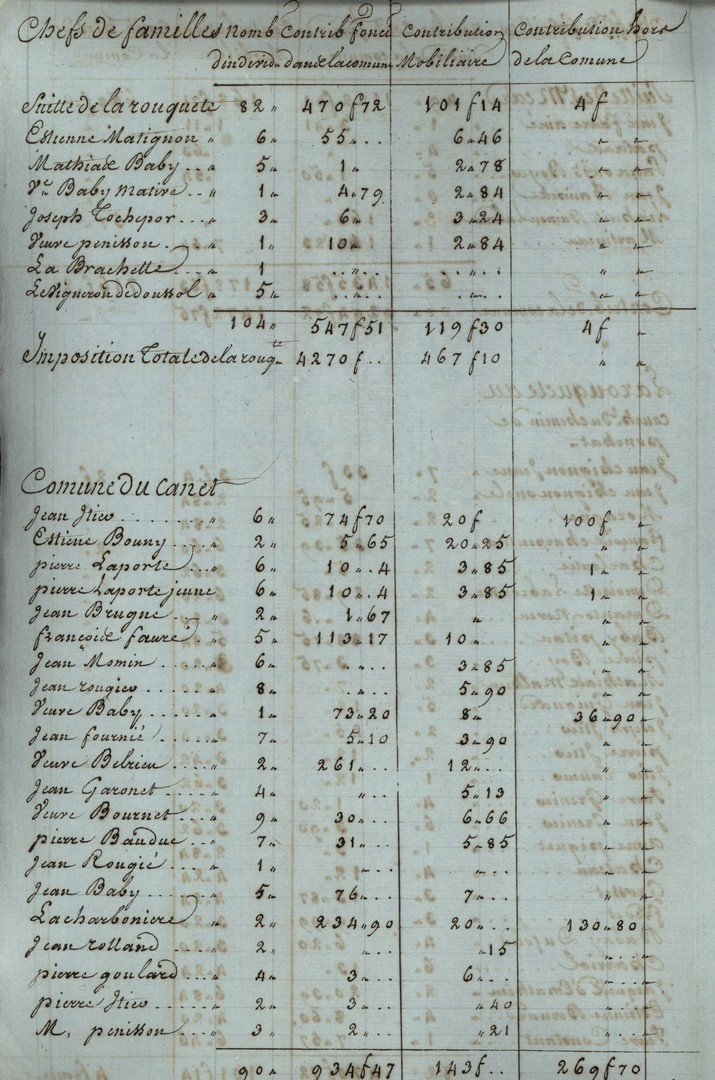 Chefs de familles nomb contrib fonci contribution Contribution hors
d'individu dans la comune Mobiliaire de la Comune
Suitte de la rouquete 82 „ 470 f 72 101 f 14 4 f
Estienne Matignon „ 6 „ 55 „ . . . 6 „ 46 „ „
Mathias Baby . . „ 5 „ 1 „ 2 „ 78 „ „
Ve Baby Mative . . „ 1 „ 4 „ 79 2 „ 84 „ „
Joseph Tochepor . . . „ 3 „ 6 „ 3 „ 24 „ „
Veuve penisson . „ 1 „ 10 „ 2 „ 84 „ „
La Brachette „ 1 . . „ . . . . „ . . „ „
Le Vigneron de doussol „ 5 „ . . „ . . . . „ . . „ „
104 „ 547 f 51 119 f 30 4 f „
Imposition Totale de la rouqte 4270 f . . 467 f 10 „ „
Comune du canet
Jean Itiev . . . . . . . „ 6 „ 74 f 70 20 f 100 f „
Estiene Bouny . . . . „ 2 „ 5 „ 65 20 „ 25 „ „
pierre Laporte . „ 6 „ 10 „ . 4 3 „ 85 1 „ „
pierre Laporte jeune 6 „ 10 „ . 4 3 „ 85 1 „ „
Jean Brugne . . . . „ 2 „ 1 „ 67 „ „ „
francoise faure . „ 5 „ 113 „ 17 10 „ „ „
Jean Momin . . . . „ 6 „ „ . . . 3 „ 85 „ „
Jean rougiev . . . . „ 8 „ „ . . . 5 „ 90 „ „
Veuve Baby . . . . . „ 1 „ 73 „ 20 8 „ 36 „ 90 „
Jean fournié . . . . „ 7 „ 5 „ 10 3 „ 90 „ „
Veuve Belrieu . . . . „ 2 „ 261 „ . . . 12 „ . . . „ „
Jean Garonet . . . . „ 4 „ „ . . . 5 „ 13 „ „
Veuve Bournet . . . „ 9 „ 30 „ . . . 6 „ 66 „ „
pierre Bauduc . . . „ 7 „ 31 „ . . . 5 „ 85 „ „
Jean Rougié . . . . „ 1 „ „ . . . „ . . . „ „
Jean Baby . . . . . „ 5 „ 76 „ . . . 7 „ . . . „ „
Lacharboniere „ 2 „ 234 „ 90 20 „ . . . 130 „ 80 „
Jean rolland . . . . „ 2 „ „ . . . „ 15 „ „
pierre goulard . . . „ 4 „ 3 „ . . . 6 „ . . . „ „
pierre Itiev . . . . „ 2 „ 3 „ . . . „ 40 „ „
M, penisson . . . „ 3 „ 2 „ . . . „ 21 „ „
90 „ 934 f 47 143 f . . 269 f 70